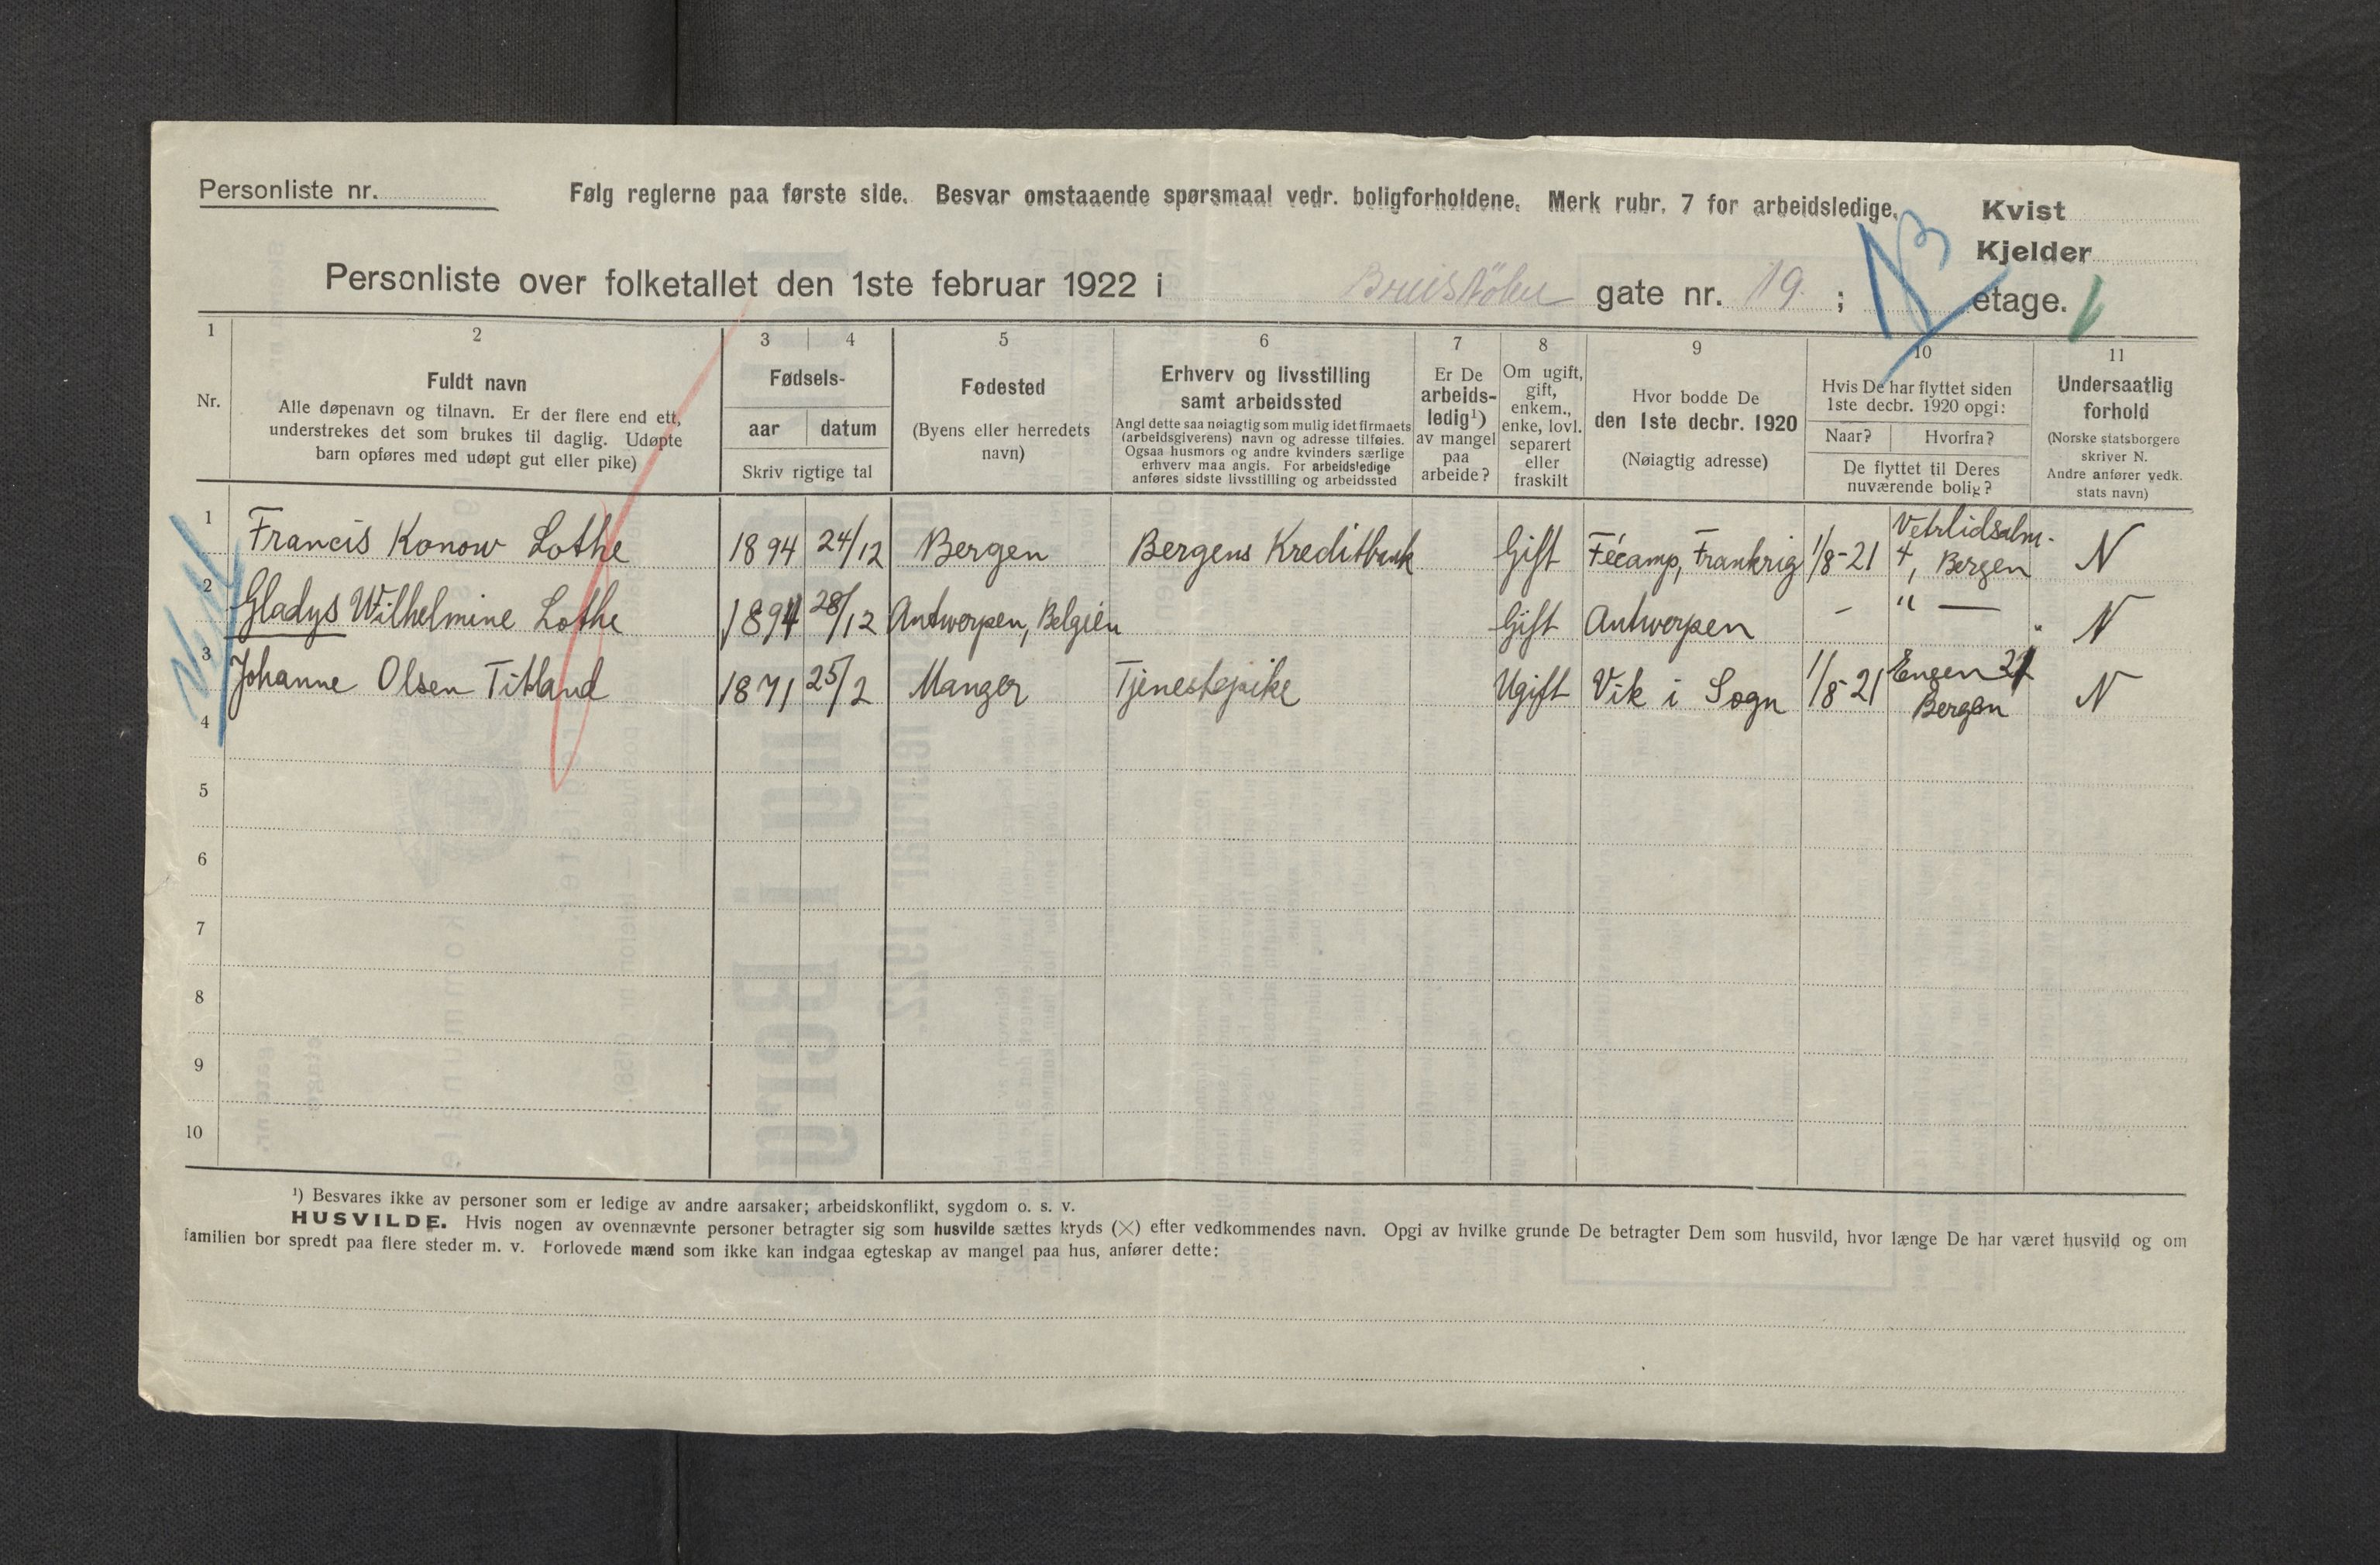 Personliste nr.
Følg reglerne paa første side. Besvar omstaaende spørsmaal vedr. boligforholdene. Merk rubr. 7 for arbeidsledige.
Kvist
Kjelder
Personliste over folketallet den 1ste februar 1922 i gate nr. 19. ; etage.
1 2 3 4 5 6 7 8 9 10 11
Nr.
Fuldt navn
Alle døpenavn og tilnavn. Er der flere end ett,
understrekes det som brukes til daglig. Udøpte
barn opføres med udøpt gut eller pike)
Fødsels-
aar datum
Skriv rigtige tal
Fødested
(Byens eller herredets
navn)
Erhverv og livsstilling
samt arbeidssted
Angi dette saa nøiagtig som mulig idet firmaets
(arbeidsgiverens) navn og adresse tilføies.
Ogsaa husmors og andre kvinders særlige
erhverv maa angis. For arbeidsledige
anføres sidste livsstilling og arbeidssted
Er De
arbeids-
ledig¹)
av mangel
paa
arbeide?
Om ugift,
gift,
enkem.,
enke, lovl.
separert
eller
fraskilt
Hvor bodde De
den 1ste decbr. 1920
(Nøiagtig adresse)
Hvis De har flyttet siden
1ste decbr. 1920 opgi:
Naar? Hvorfra?
De flyttet til Deres
nuværende bolig?
Undersaatlig
forhold
(Norske statsborgere
skriver N.
Andre anfører vedk.
stats navn)
1 Francis Konow Lothe 1894 24/12 Bergen Bergens Kreditbank Gift Fécamp, Frankrig 1/8-21 Vetrlidsalm. 4, Bergen N
2 Gladys Wilhelmine Lothe 1894 28/12 Antwerpen, Belgien Gift Antwerpen – " — N
3 Johanne Olsen Titland 1871 25/2 Manger Tjenestepike Ugift Vik i Sogn 1/8-21 Engen 21 Bergen N
4
5
6
7
8
9
10
¹) Besvares ikke av personer som er ledige av andre aarsaker; arbeidskonflikt, sygdom o. s. v.
HUSVILDE. Hvis nogen av ovennævnte personer betragter sig som husvilde sættes kryds (×) efter vedkommendes navn. Opgi av hvilke grunde De betragter Dem som husvild, hvor længe De har været husvild og om
familien bor spredt paa flere steder m. v. Forlovede mænd som ikke kan indgaa egteskap av mangel paa hus, anfører dette: